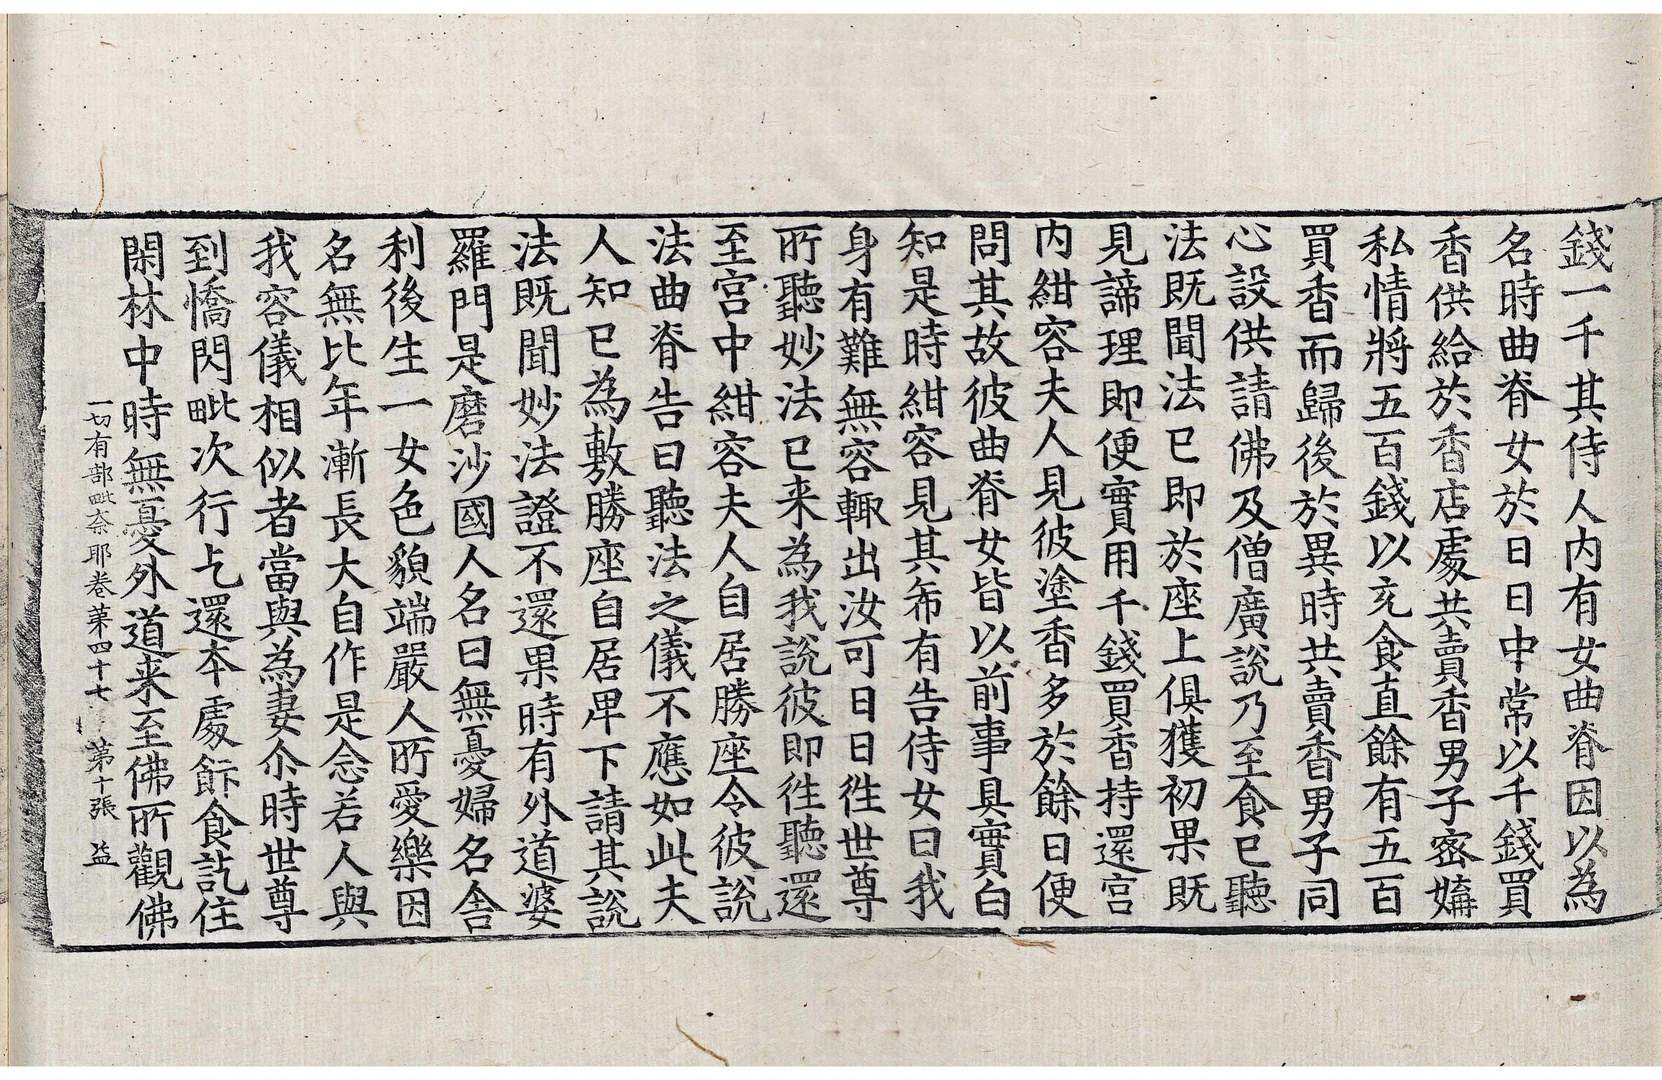 錢一千其侍人內有女曲脊因以為
名時曲脊女於日日中常以千錢買
香供給於香店處共賣香男子密媾
私情將五百錢以充食直餘有五百
買香而歸後於異時共賣香男子同
心設供請佛及僧廣說乃至食已聽
法既聞法已即於座上俱獲初果既
見諦理即便實用千錢買香持還宮
內紺容夫人見彼塗香多於餘日便
問其故彼曲脊女皆以前事具實白
知是時紺容見其希有告侍女曰我
身有難無容輙出汝可日日徃世尊
所聽妙法已来為我說彼即徃聽還
至宮中紺容夫人自居勝座令彼說
法曲脊告曰聽法之儀不應如此夫
人知已為敷勝座自居卑下請其說
法既聞妙法證不還果時有外道婆
羅門是磨沙國人名曰無憂婦名舍
利後生一女色貌端嚴人所愛樂因
名無比年漸長大自作是念若人與
我容儀相似者當與為妻尒時世尊
到憍閃毗次行乞還夲處飰食訖住
閑林中時無憂外道来至佛所觀佛
一切有部毗奈耶卷苐四十七 第十張 益